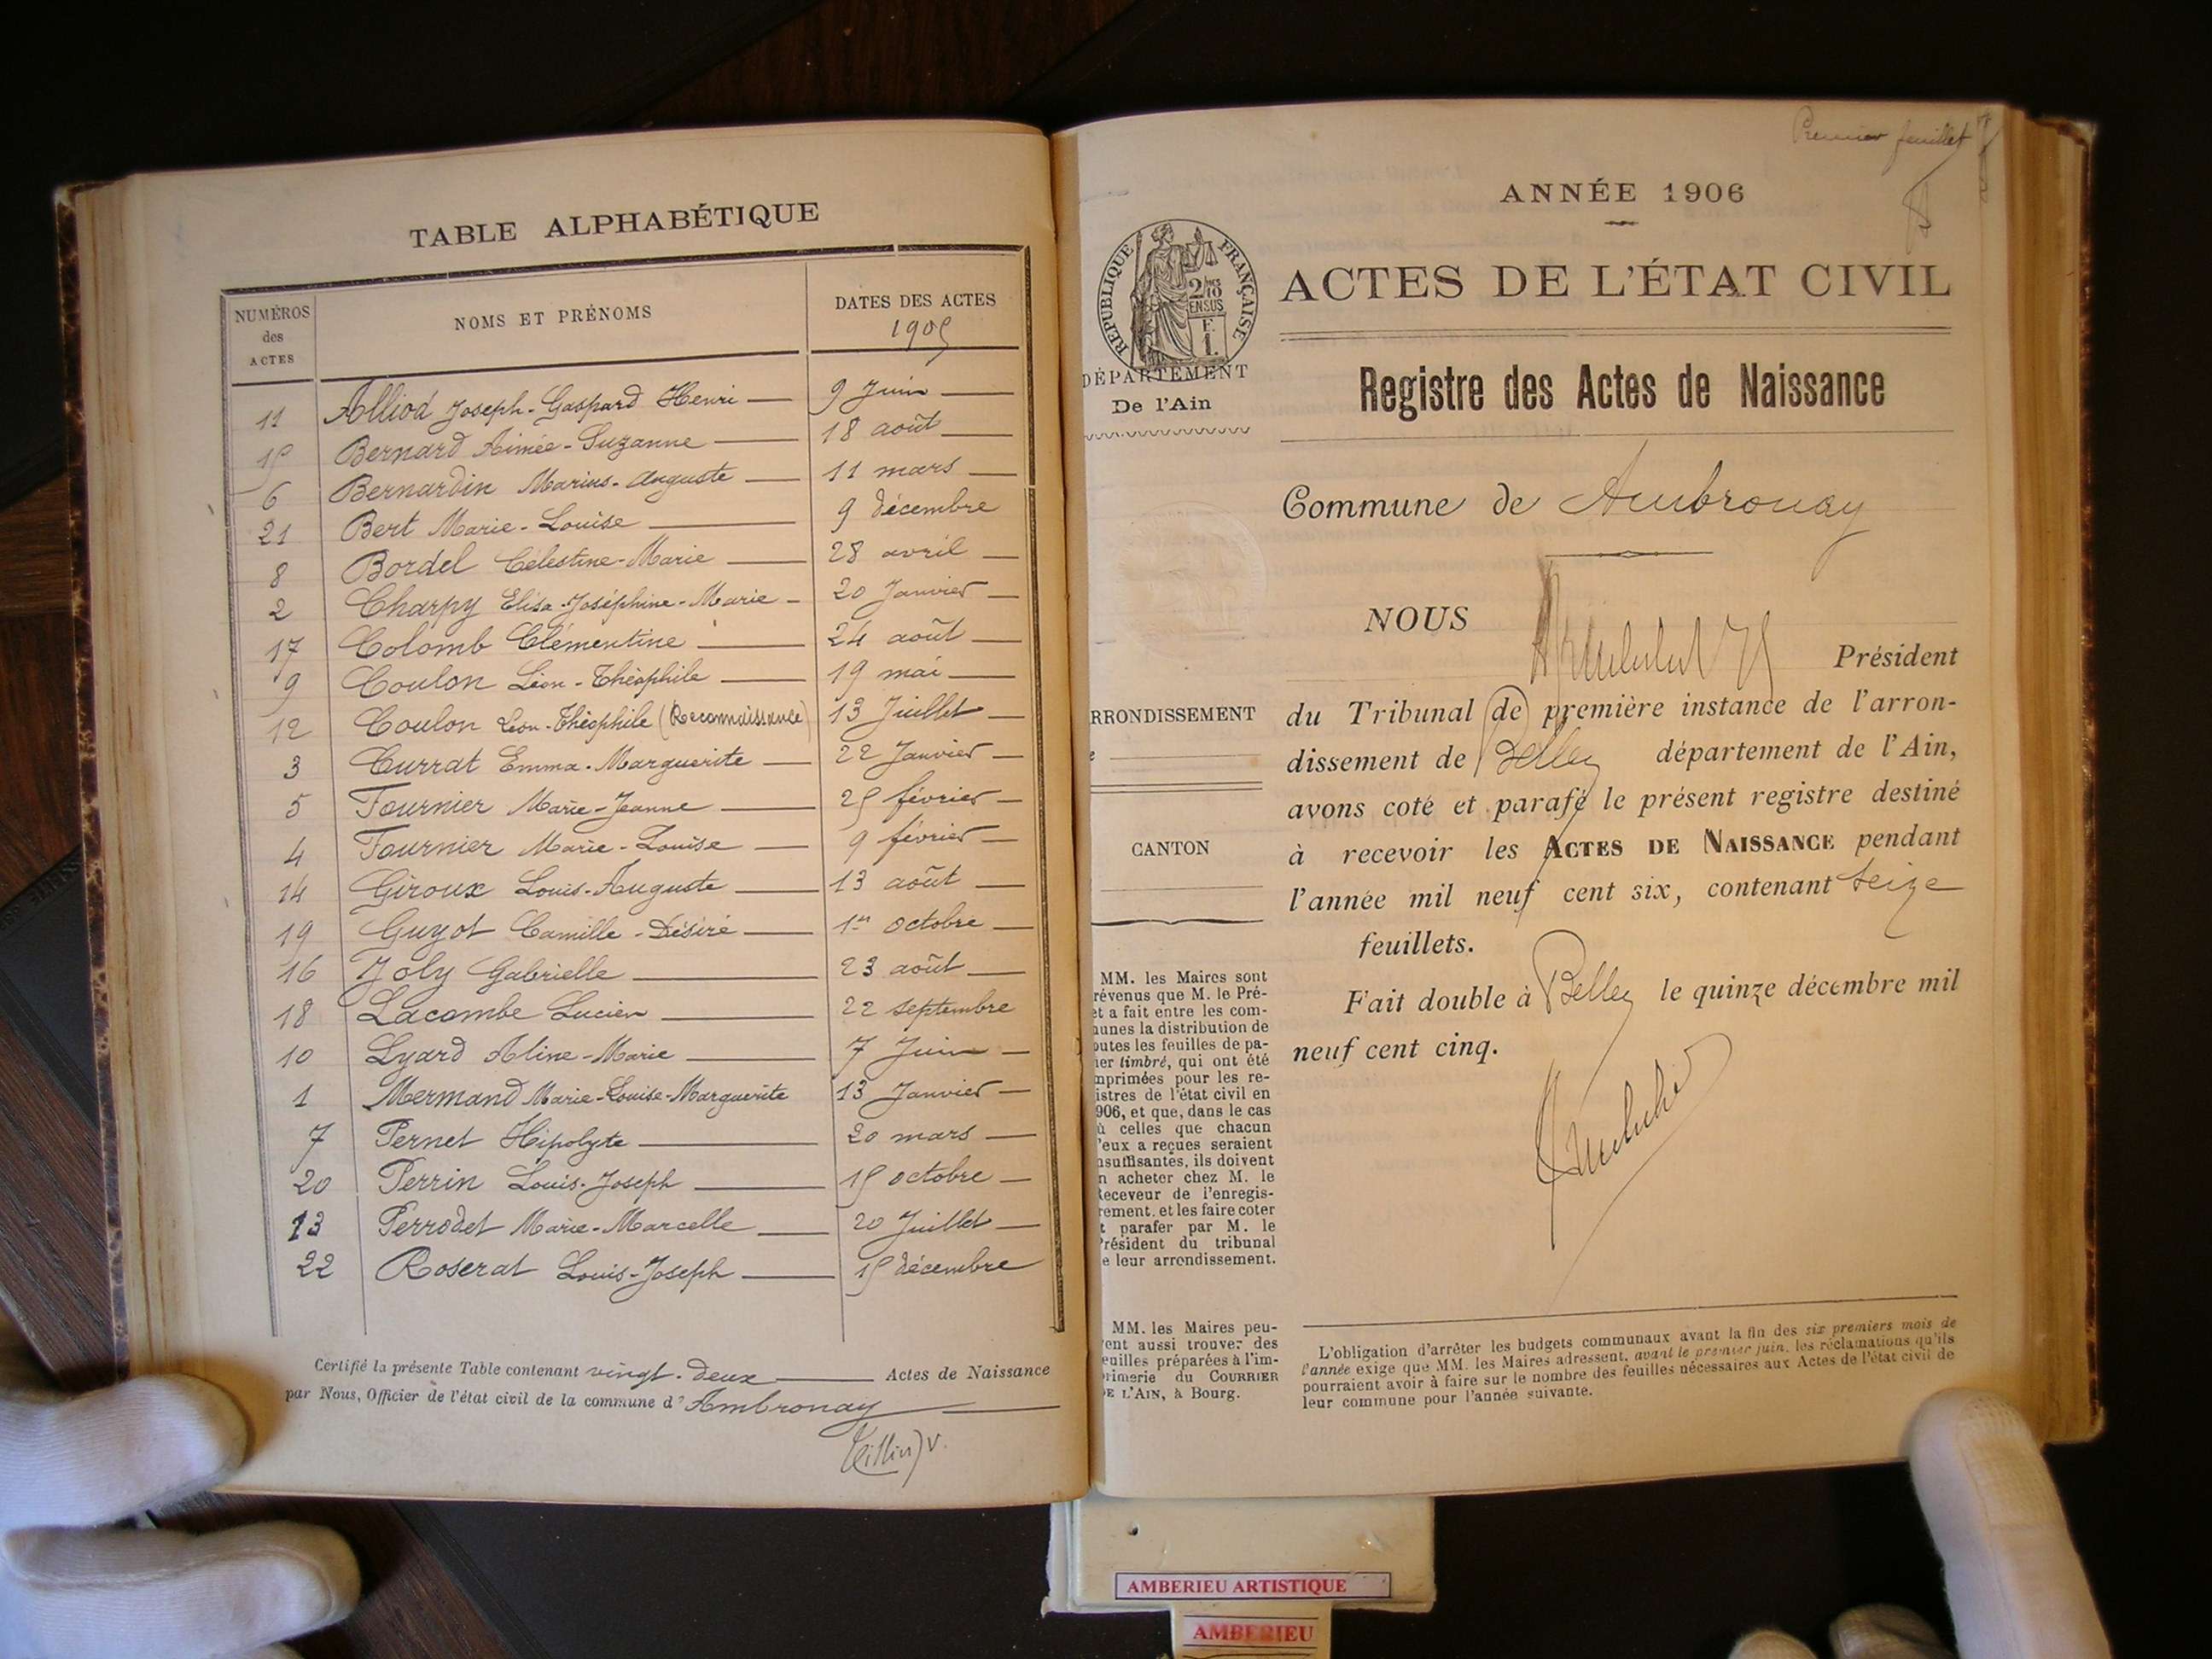 TABLE ALPHABÉTIQUE
NUMÉROS des ACTES NOMS ET PRÉNOMS DATES DES ACTES 1905
11 Alliod Joseph-Gaspard Henri 9 Juin
15 Bernard Aimée-Suzanne 18 août
6 Bernardin Marius-Auguste 11 mars
21 Bert Marie-Louise 9 décembre
8 Bordel Célestine-Marie 28 avril
2 Charpy Elisa-Joséphine-Marie 20 Janvier
17 Colomb Clémentine 24 août
9 Coulon Léon-Théophile 19 mai
12 Coulon Léon-Théophile (Reconnaissance) 13 Juillet
3 Currat Emma-Marguerite 22 Janvier
5 Fournier Marie-Jeanne 25 février
4 Fournier Marie-Louise 9 février
14 Giroux Louis-Auguste 13 août
19 Guyot Camille-Désiré 1er octobre
16 Joly Gabrielle 23 août
18 Lacombe Lucien 22 septembre
10 Lyard Aline-Marie 7 Juin
1 Mermand Marie-Louise-Marguerite 13 Janvier
7 Pernet Hipolyte 20 mars
20 Perrin Louis-Joseph 15 octobre
13 Perrodet Marie-Marcelle 20 Juillet
22 Roserat Louis-Joseph 15 décembre
Certifié la présente Table contenant vingt-deux Actes de Naissance
par Nous, Officier de l'état civil de la commune d'Ambronay
Premier feuillet
ANNÉE 1906
RÉPUBLIQUE FRANÇAISE
2/10 EN SUS
DÉPARTEMENT
De l'Ain
ACTES DE L'ÉTAT CIVIL
Registre des Actes de Naissance
Commune de Ambronay
NOUS
Président
du Tribunal de première instance de l'arron-
dissement de Belley département de l'Ain,
avons coté et parafé le présent registre destiné
à recevoir les ACTES DE NAISSANCE pendant
l'année mil neuf cent six, contenant seize
feuillets.
Fait double à Belley le quinze décembre mil
neuf cent cinq.
RRONDISSEMENT
CANTON
MM. les Maires sont
révenus que M. le Pré-
et a fait entre les com-
unes la distribution de
outes les feuilles de pa-
ier timbré, qui ont été
mprimées pour les re-
istres de l'état civil en
906, et que, dans le cas
ù celles que chacun
'eux a reçues seraient
nsuffisantes, ils doivent
n acheter chez M. le
Receveur de l'enregis-
rement, et les faire coter
t parafer par M. le
Président du tribunal
e leur arrondissement.
MM. les Maires peu-
vent aussi trouver des
euilles préparées à l'im-
rimerie du COURRIER
DE L'AIN, à Bourg.
L'obligation d'arrêter les budgets communaux avant la fin des six premiers mois de
l'année exige que MM. les Maires adressent, avant le premier juin, les réclamations qu'ils
pourraient avoir à faire sur le nombre des feuilles nécessaires aux Actes de l'état civil de
leur commune pour l'année suivante.
AMBERIEU ARTISTIQUE
AMBERIEU